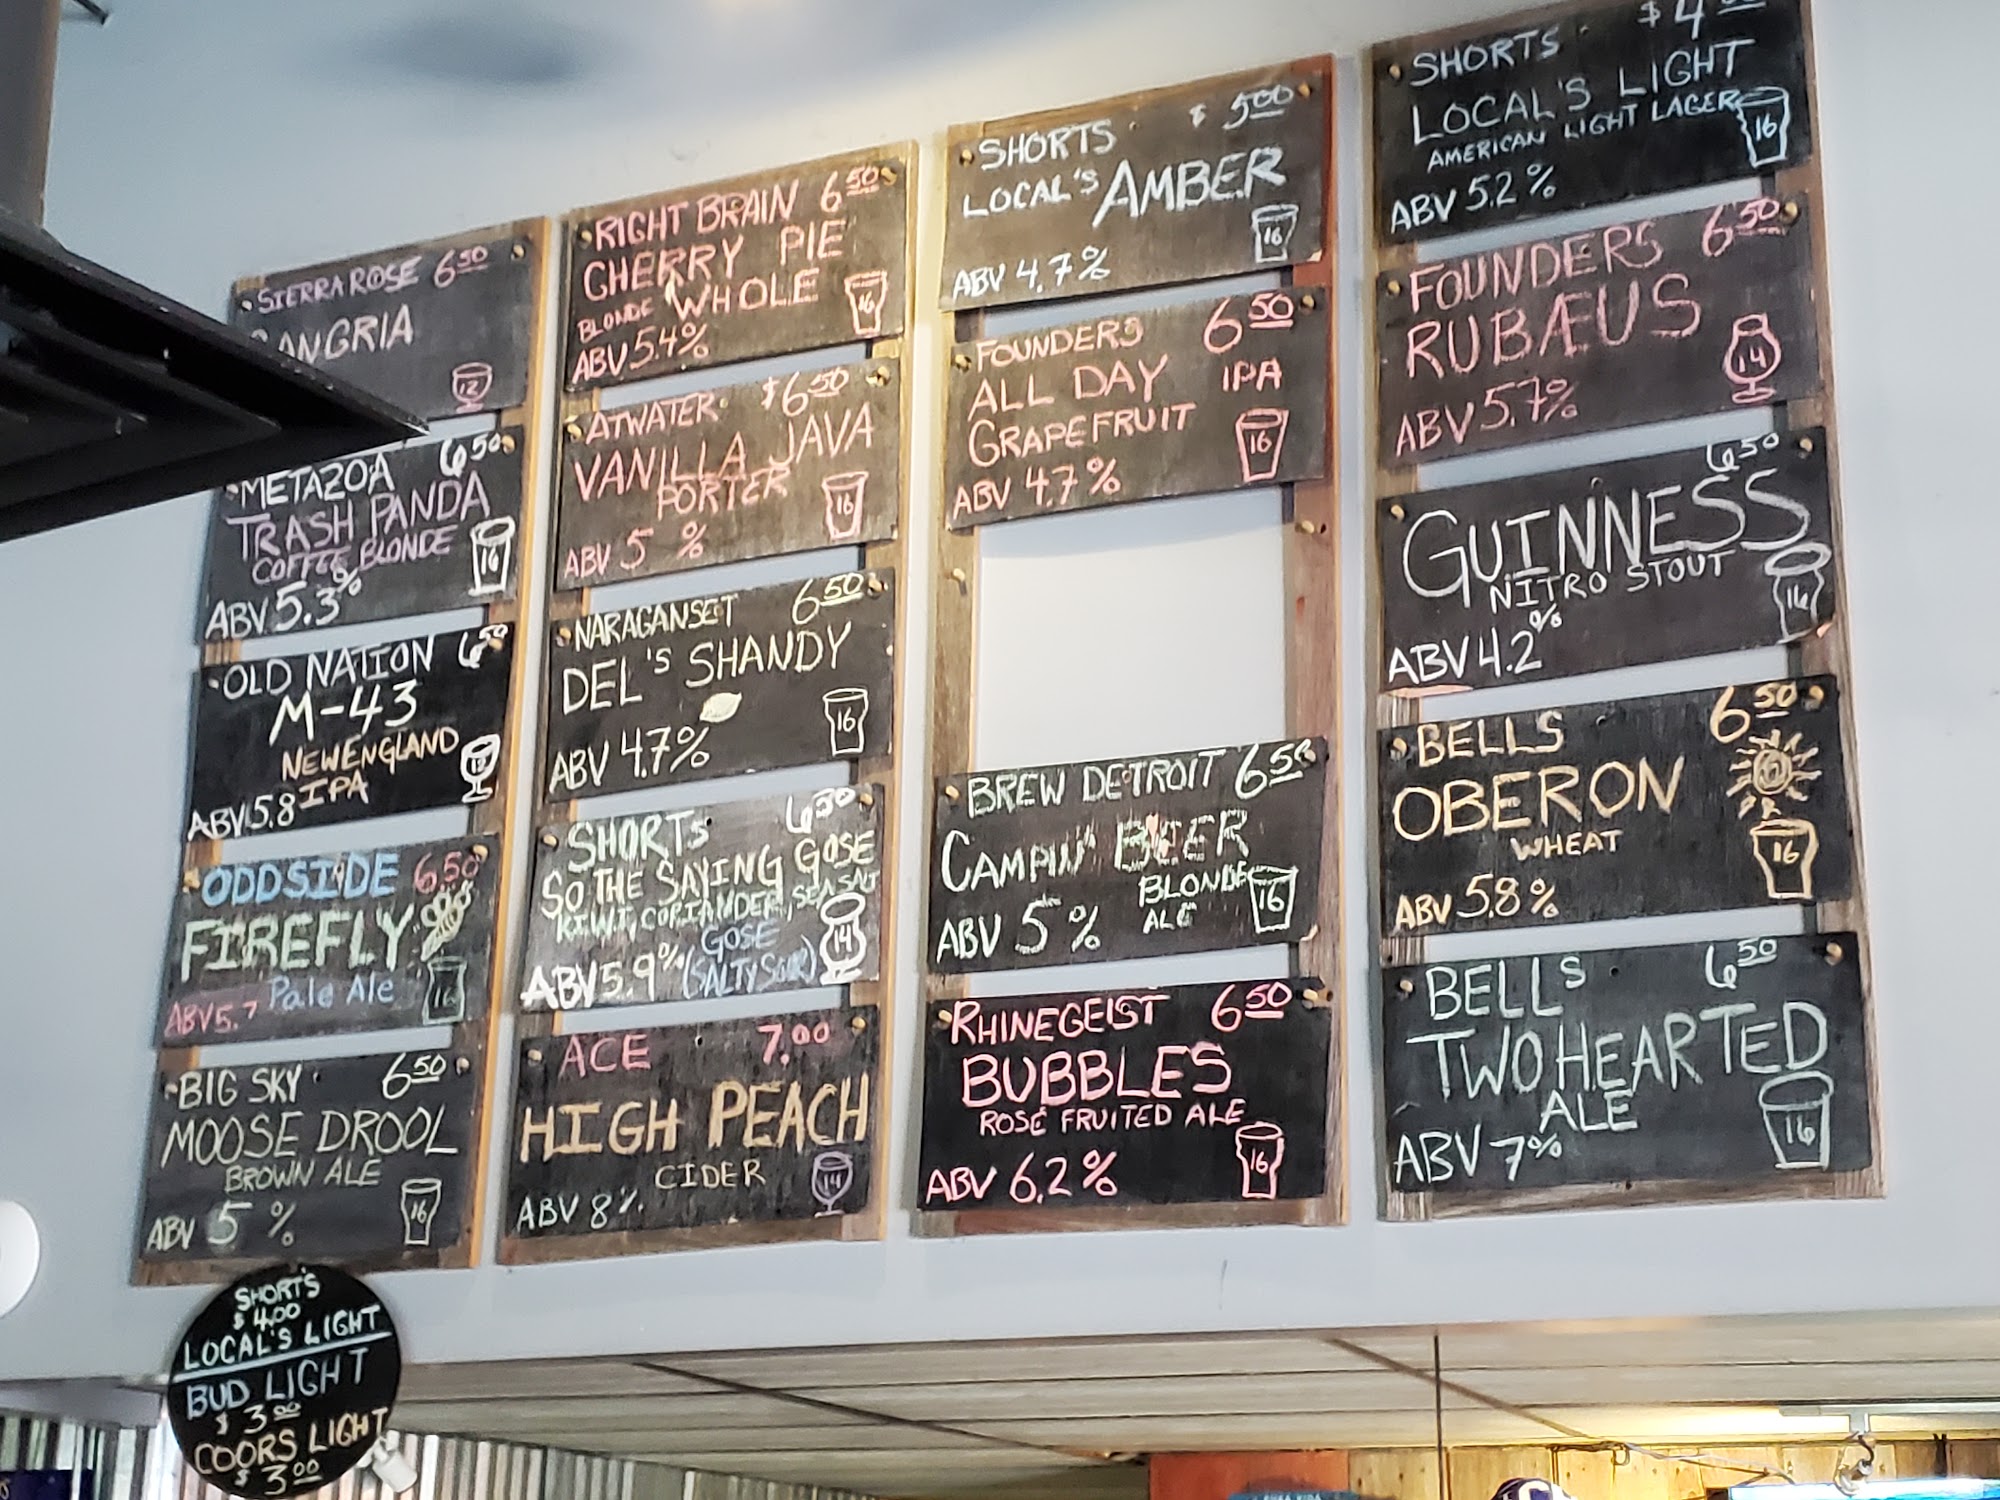 SIERRA ROSE 6.50
SANGRIA
12
METAZOA 6.50
TRASH PANDA
COFFEE BLONDE
16
ABV 5.3%
OLD NATION 6.50
M-43
NEW ENGLAND
IPA
ABV 5.8
ODDSIDE 6.50
FIREFLY
Pale Ale
16
ABV 5.7
BIG SKY 6.50
MOOSE DROOL
BROWN ALE
16
ABV 5 %
SHORT'S
$ 4.00
LOCAL'S LIGHT
BUD LIGHT
$ 3.00
COORS LIGHT
$ 3.00
RIGHT BRAIN 6.50
CHERRY PIE
BLONDE WHOLE
16
ABV 5.4%
ATWATER $6.50
VANILLA JAVA
PORTER
16
ABV 5 %
NARAGANSET 6.50
DEL'S SHANDY
16
ABV 4.7%
SHORTS 6.50
SO THE SAYING GOSE
KIWI, CORIANDER, SEA SALT
GOSE
14
ABV 5.9% (SALTY SOUR)
ACE 7.00
HIGH PEACH
CIDER
14
ABV 8%
SHORTS $ 5.00
LOCAL'S AMBER
16
ABV 4.7%
FOUNDERS 6.50
ALL DAY IPA
GRAPEFRUIT
16
ABV 4.7%
BREW DETROIT 6.50
CAMPIN' BEER
BLONDE
ALE
16
ABV 5 %
RHINEGEIST 6.50
BUBBLES
ROSÉ FRUITED ALE
16
ABV 6.2%
SHORTS $ 4.00
LOCAL'S LIGHT
AMERICAN LIGHT LAGER
16
ABV 5.2%
FOUNDERS 6.50
RUBÆUS
14
ABV 5.7%
6.50
GUINNESS
NITRO STOUT
16
ABV 4.2%
BELLS 6.50
OBERON
WHEAT
16
ABV 5.8%
BELLS 6.50
TWO HEARTED
ALE
16
ABV 7%